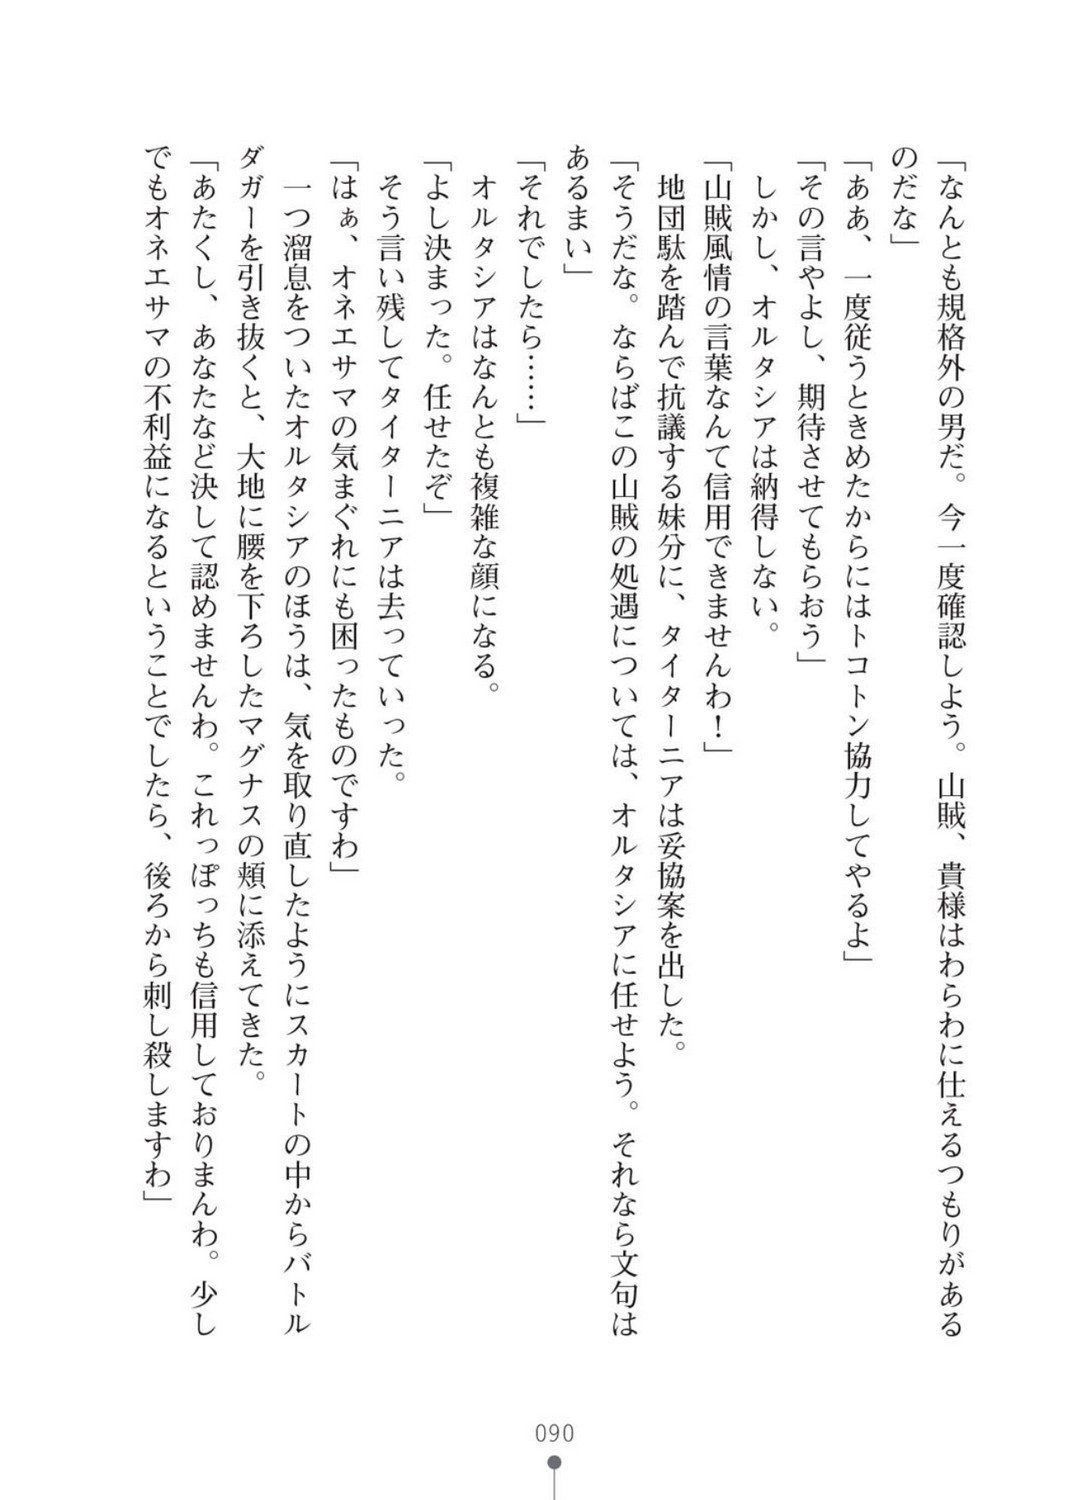 「なんとも規格外の男だ。今一度確認しよう。山賊、貴様はわらわに仕えるつもりがある
のだな」
「ああ、一度従うときめたからにはトコトン協力してやるよ」
「その言やよし、期待させてもらおう」
しかし、オルタシアは納得しない。
「山賊風情の言葉なんて信用できませんわ！」
地団駄を踏んで抗議する妹分に、タイターニアは妥協案を出した。
「そうだな。ならばこの山賊の処遇については、オルタシアに任せよう。それなら文句は
あるまい」
「それでしたら……」
オルタシアはなんとも複雑な顔になる。
「よし決まった。任せたぞ」
そう言い残してタイターニアは去っていった。
「はぁ、オネエサマの気まぐれにも困ったものですわ」
一つ溜息をついたオルタシアのほうは、気を取り直したようにスカートの中からバトル
ダガーを引き抜くと、大地に腰を下ろしたマグナスの頬に添えてきた。
「あたくし、あなたなど決して認めませんわ。これっぽっちも信用しておりまんわ。少し
でもオネエサマの不利益になるということでしたら、後ろから刺し殺しますわ」
090